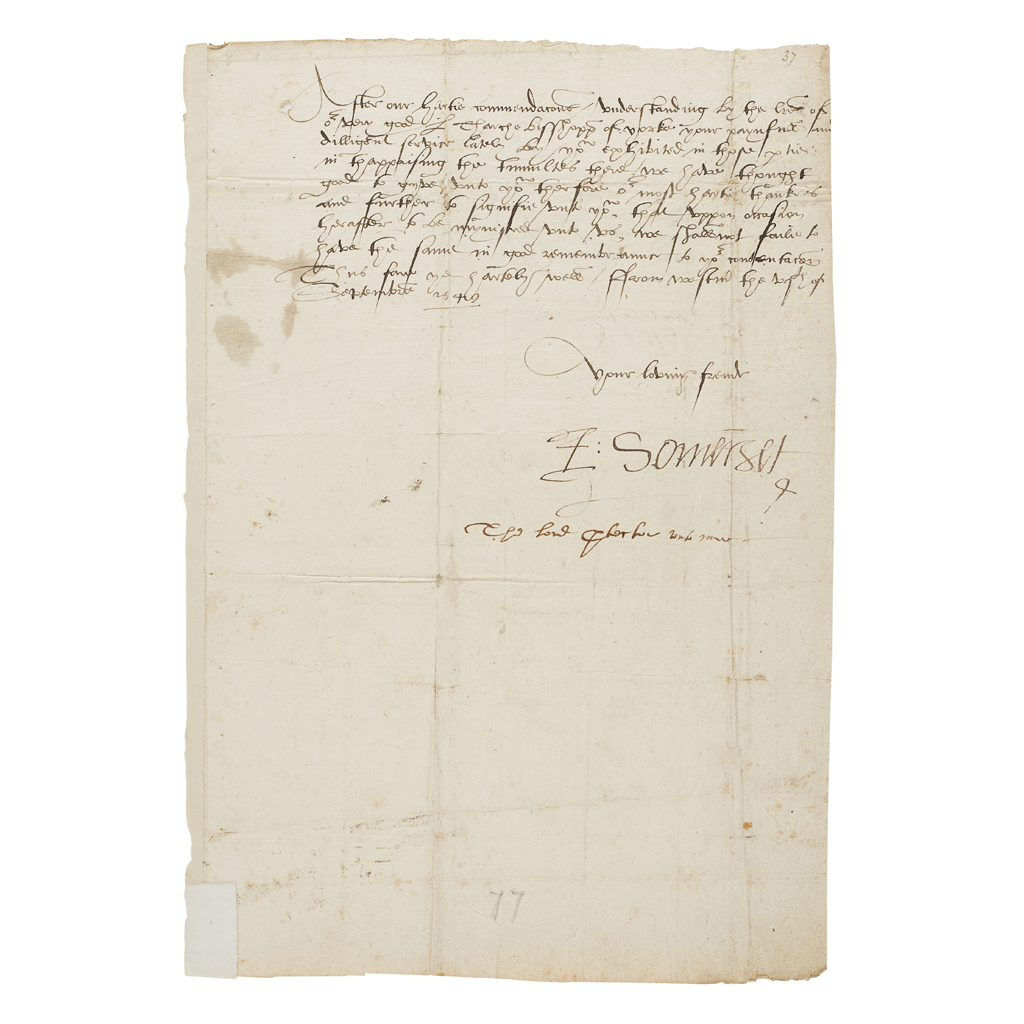 37
After our hartie commendacons understanding by the lres of
or very good L Tharchebisshopp of yorke your paynfull and
dilligent service lately by yor exhibited in those pties
in thappaising the tumultes there, we have thought
good to gyve unto yor therfore or most hartie thankes
and further to signifie unto yor, that uppon occasion
herafter to be mynistred unto us, we shall not faile to
have the same in good remembraunce to yor contentacon
Thus fare ye hartely well. From westm the vth of
Septembre 1549
Your loving frende
E: Somerset
The lord Ptector unto me
77